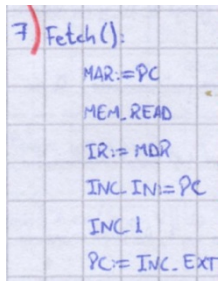 7) Fetch():
MAR:=PC
MEM_READ
IR:= MDR
INC_IN:=PC
INC 1
PC:= INC_EXT